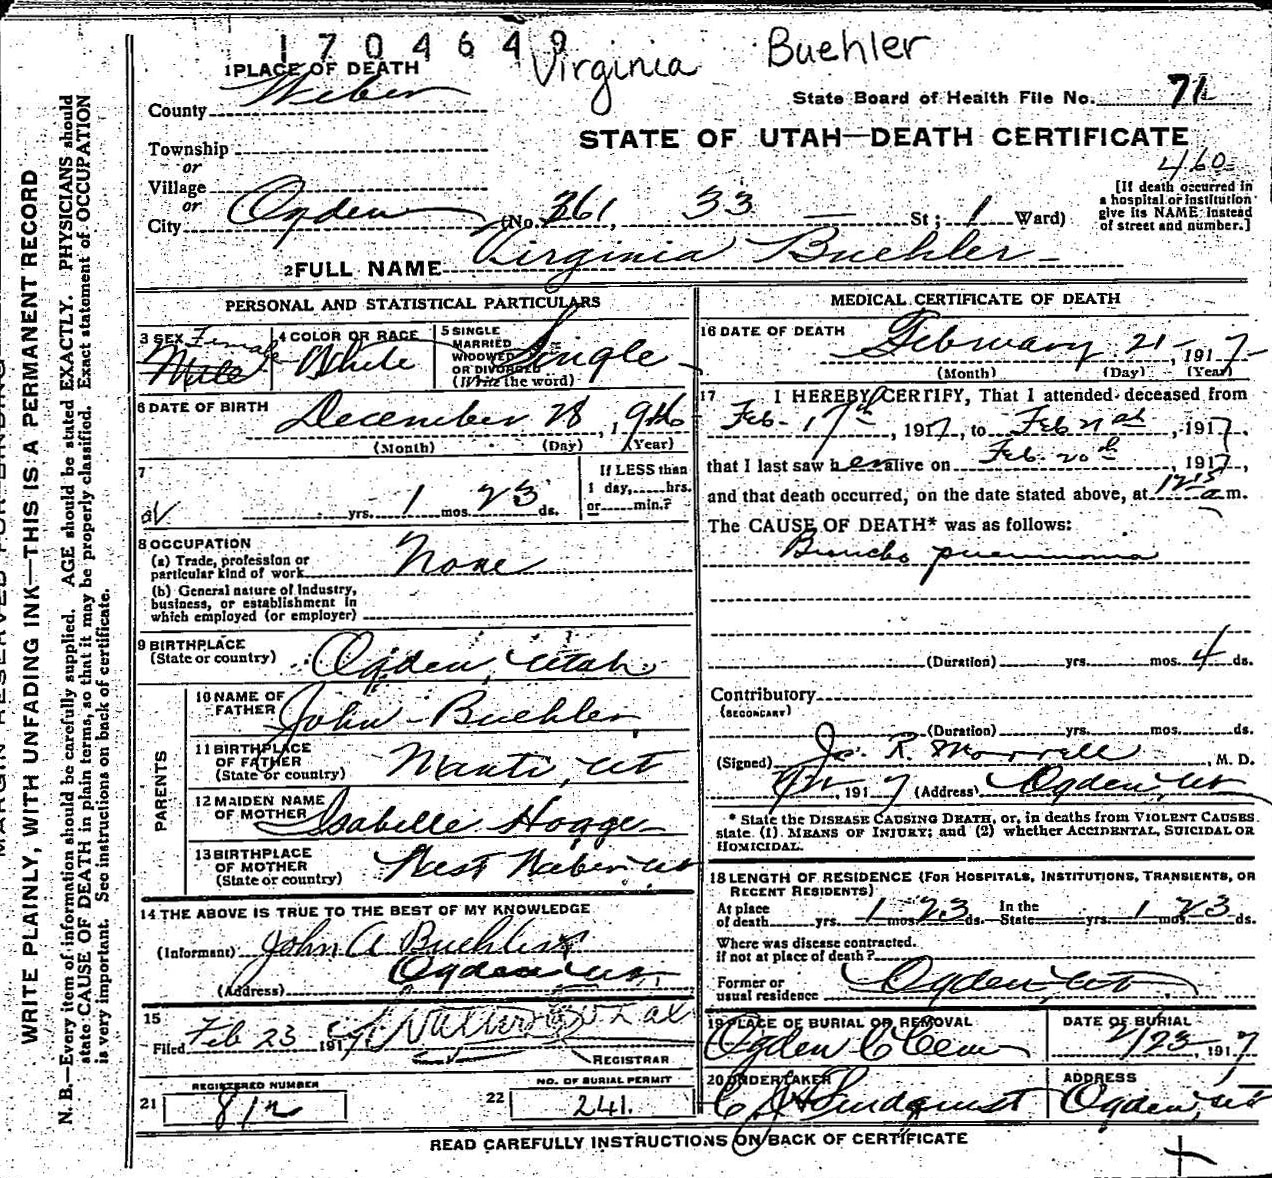 1704649
Virginia Buehler
1 PLACE OF DEATH
County Weber
State Board of Health File No. 71
Township
or
Village
or
City Ogden (No. 361, 33 St; 1 Ward)
STATE OF UTAH—DEATH CERTIFICATE
460
[If death occurred in
a hospital or institution
give its NAME instead
of street and number.]
2 FULL NAME Virginia Buehler
PERSONAL AND STATISTICAL PARTICULARS
3 SEX Female Male
4 COLOR OR RACE White
5 SINGLE
MARRIED
WIDOWED
OR DIVORCED
(Write the word)
Single
6 DATE OF BIRTH
December 28, 1916
(Month) (Day) (Year)
7
yrs. 1 mos. 23 ds.
If LESS than
1 day, hrs.
or min.?
8 OCCUPATION
(a) Trade, profession or
particular kind of work None
(b) General nature of Industry,
business, or establishment in
which employed (or employer)
9 BIRTHPLACE
(State or country) Ogden, Utah
PARENTS
10 NAME OF
FATHER John Buehler
11 BIRTHPLACE
OF FATHER
(State or country) Manti, Ut
12 MAIDEN NAME
OF MOTHER Isabelle Hogge
13 BIRTHPLACE
OF MOTHER
(State or country) West Weber, Ut
14 THE ABOVE IS TRUE TO THE BEST OF MY KNOWLEDGE
(Informant) John A Buehler
(Address) Ogden Ut.
15
Filed Feb 23 1917
REGISTRAR
21 REGISTERED NUMBER
22 NO. OF BURIAL PERMIT
241.
MEDICAL CERTIFICATE OF DEATH
16 DATE OF DEATH
February 21, 1917
(Month) (Day) (Year)
17 I HEREBY CERTIFY, That I attended deceased from
Feb. 17th, 1917, to Feb 21st, 1917,
that I last saw her alive on Feb. 20th, 1917,
and that death occurred, on the date stated above, at 1215 a m.
The CAUSE OF DEATH* was as follows:
Broncho pneumonia
(Duration) yrs. mos. 4 ds.
Contributory
(SECONDARY)
(Duration) yrs. mos. ds.
(Signed) Jos. R. Morrell M. D.
, 1917 (Address) Ogden, Ut
* State the DISEASE CAUSING DEATH, or, in deaths from VIOLENT CAUSES
state (1) MEANS OF INJURY; and (2) whether ACCIDENTAL, SUICIDAL OR
HOMICIDAL.
18 LENGTH OF RESIDENCE (FOR HOSPITALS, INSTITUTIONS, TRANSIENTS, OR
RECENT RESIDENTS)
At place
of death yrs. 1 mos. 23 ds. In the
State yrs. 1 mos. 23 ds.
Where was disease contracted.
if not at place of death?
Former or
usual residence Ogden, Ut
19 PLACE OF BURIAL OR REMOVAL
Ogden C Cem
DATE OF BURIAL
2/23, 1917
20 UNDERTAKER
C J Lindquist
ADDRESS
Ogden, Ut
READ CAREFULLY INSTRUCTIONS ON BACK OF CERTIFICATE
WRITE PLAINLY, WITH UNFADING INK—THIS IS A PERMANENT RECORD
N. B.—Every item of information should be carefully supplied. AGE should be stated EXACTLY. PHYSICIANS should
state CAUSE OF DEATH in plain terms, so that it may be properly classified. Exact statement of OCCUPATION
is very important. See instructions on back of certificate.